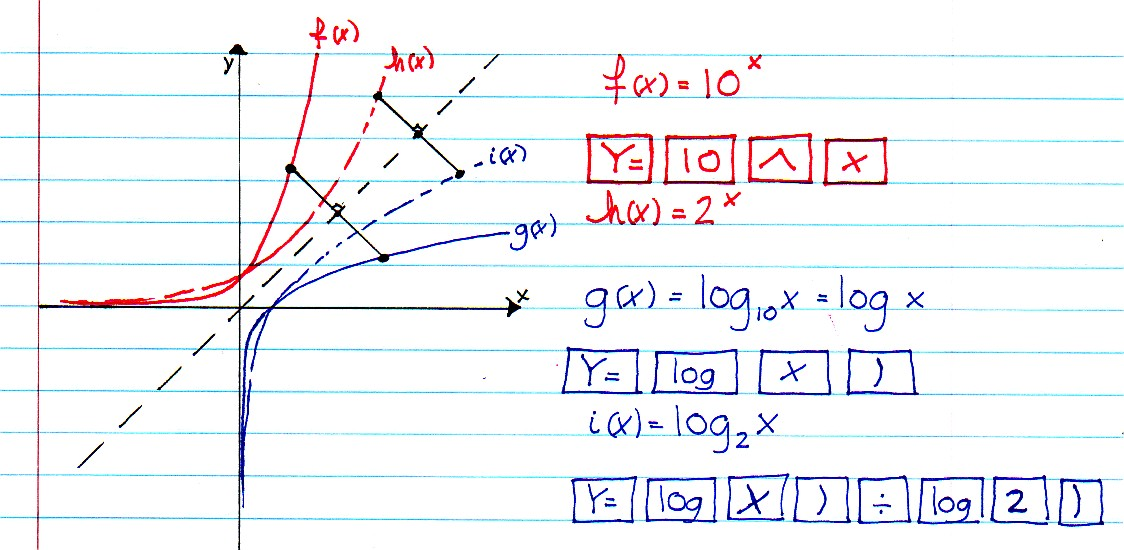 f(x)
y
h(x)
i(x)
g(x)
x
f(x) = 10^x
Y= 10 ^ x
h(x) = 2^x
g(x) = log₁₀x = log x
Y= log x )
i(x) = log₂x
Y= log X ) ÷ log 2 )